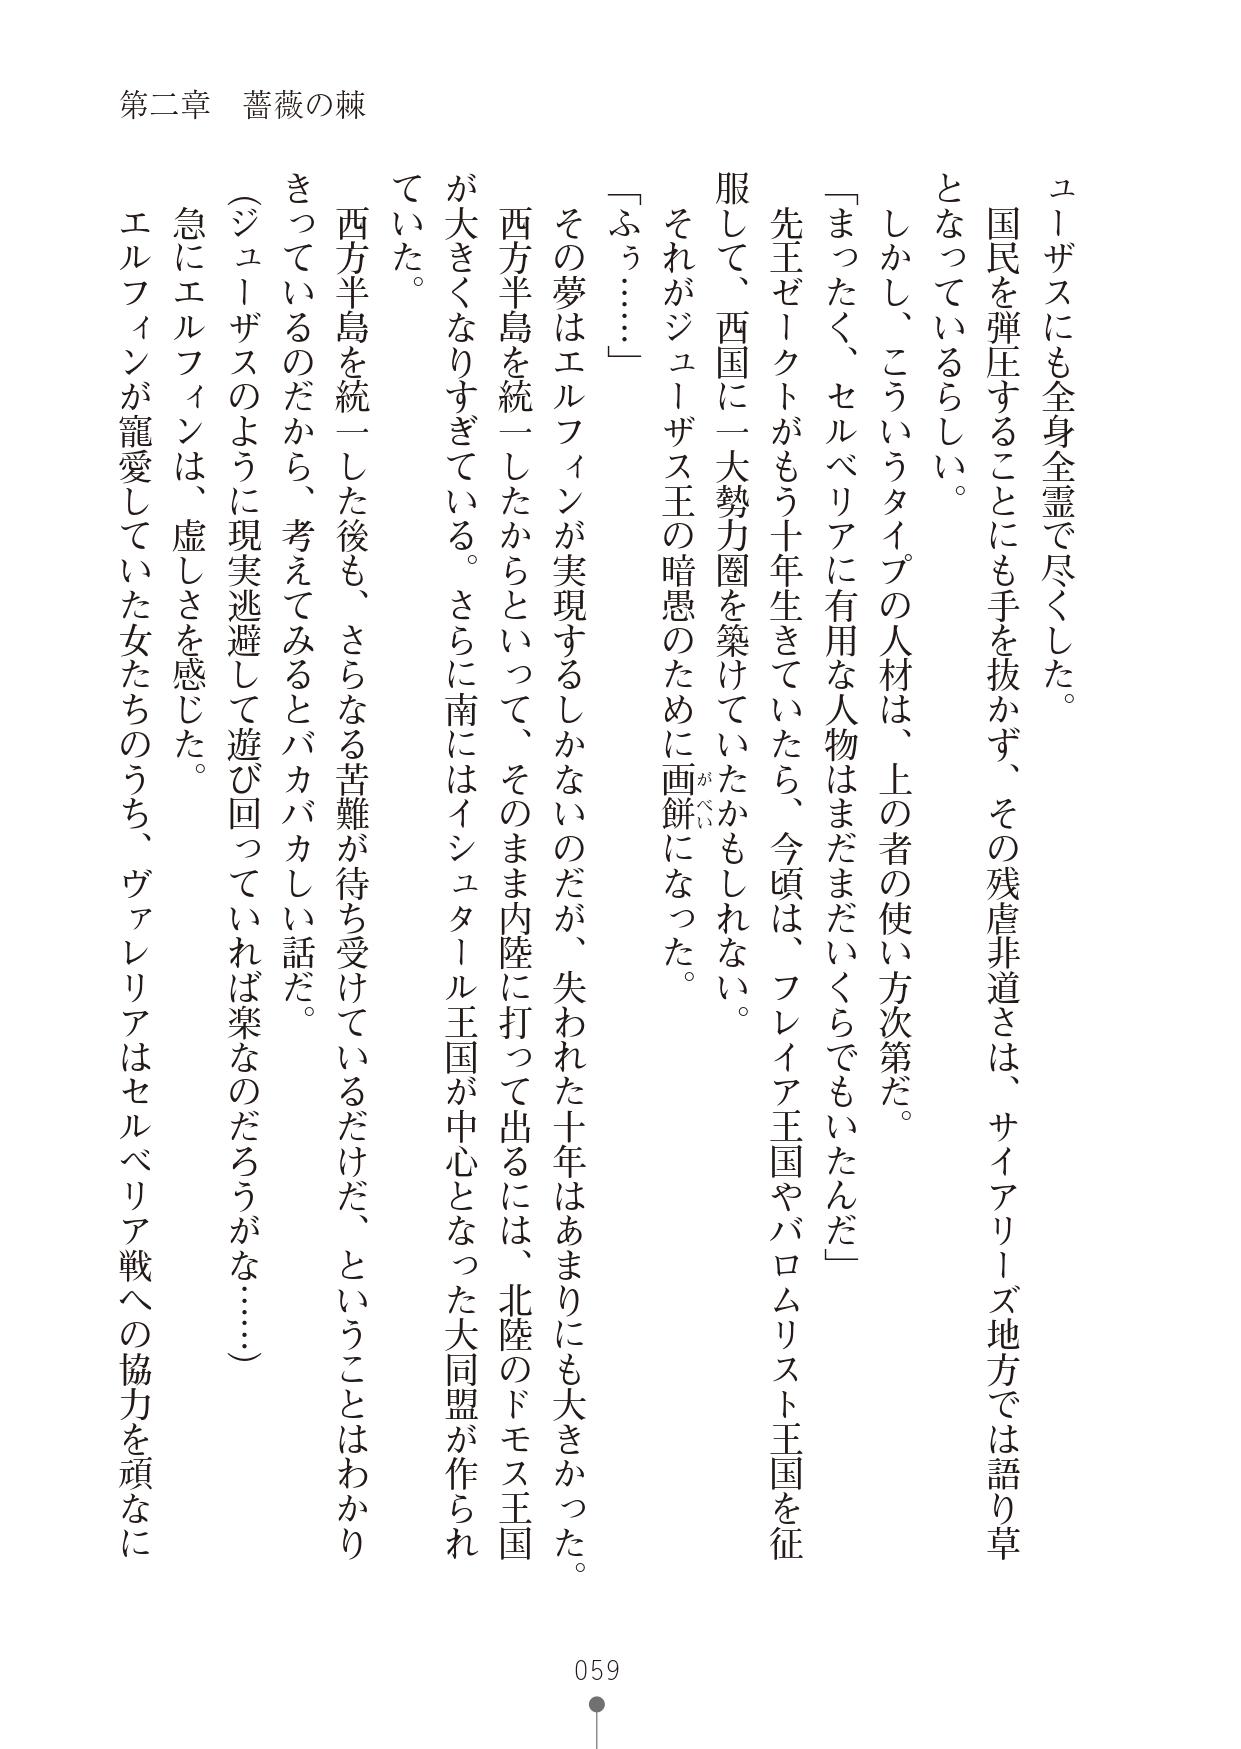 第二章　薔薇の棘
ューザスにも全身全霊で尽くした。
　国民を弾圧することにも手を抜かず、その残虐非道さは、サイアリーズ地方では語り草
となっているらしい。
　しかし、こういうタイプの人材は、上の者の使い方次第だ。
「まったく、セルベリアに有用な人物はまだまだいくらでもいたんだ」
　先王ゼークトがもう十年生きていたら、今頃は、フレイア王国やバロムリスト王国を征
服して、西国に一大勢力圏を築けていたかもしれない。
　それがジューザス王の暗愚のために画餅になった。
がべい
「ふぅ……」
　その夢はエルフィンが実現するしかないのだが、失われた十年はあまりにも大きかった。
　西方半島を統一したからといって、そのまま内陸に打って出るには、北陸のドモス王国
が大きくなりすぎている。さらに南にはイシュタール王国が中心となった大同盟が作られ
ていた。
　西方半島を統一した後も、さらなる苦難が待ち受けているだけだ、ということはわかり
きっているのだから、考えてみるとバカバカしい話だ。
（ジューザスのように現実逃避して遊び回っていれば楽なのだろうがな……）
　急にエルフィンは、虚しさを感じた。
　エルフィンが寵愛していた女たちのうち、ヴァレリアはセルベリア戦への協力を頑なに
059